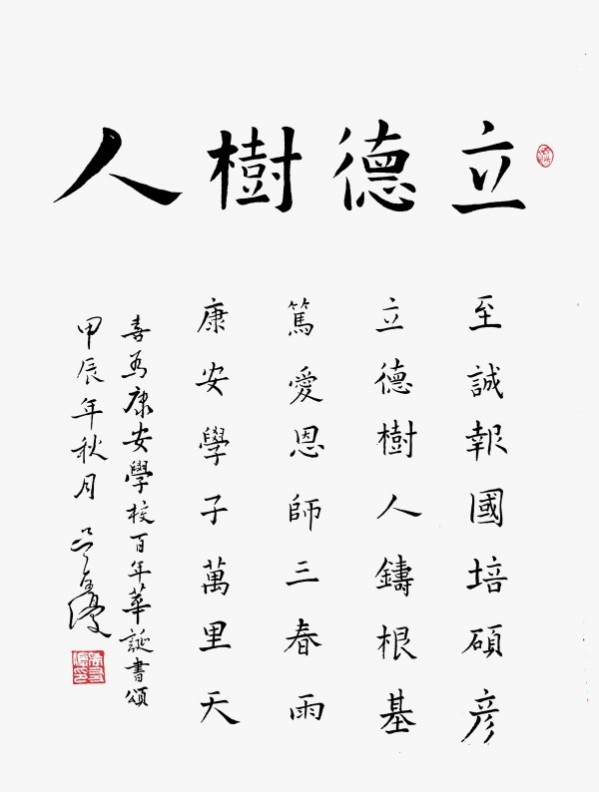 立德樹人
至誠報國培碩彦
立德樹人鑄根基
篤愛恩師三春雨
康安學子萬里天
喜为康安學校百年華誕書頌
甲辰年秋月